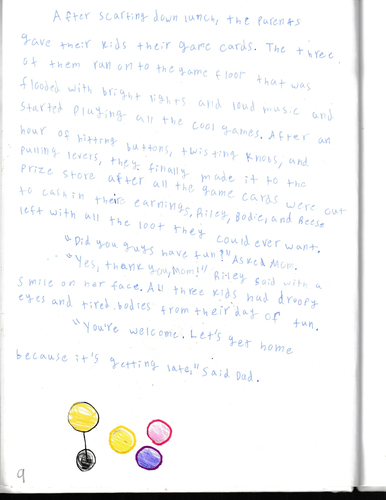 After scarfing down lunch, the parents
gave their kids their game cards. The three
of them ran on to the game floor that was
flooded with bright lights and loud music and
started playing all the cool games. After an
hour of hitting buttons, twisting knobs, and
pulling levers, they finally made it to the
prize store after all the game cards were out
to cash in their earnings. Riley, Bodie, and Reese
left with all the loot they could ever want.
"Did you guys have fun?" Asked Mom.
"Yes, thank you, Mom!" Riley said with a
smile on her face. All three kids had droopy
eyes and tired bodies from their day of fun.
"You're welcome. Let's get home
because it's getting late," said Dad.
9